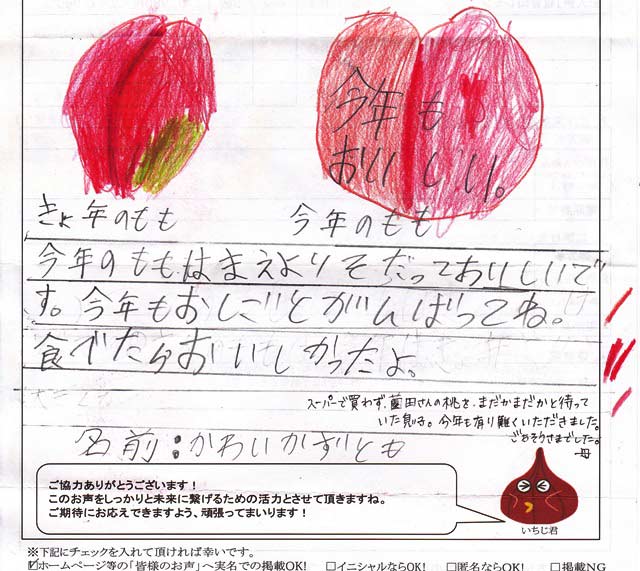 今年も
おいしい。
きょ年のもも
今年のもも
今年のももはまえよりそだっておいしいで
す。今年もおしごとがんばってね。
食べたらおいしかったよ。
スーパーで買わず、藍田さんの桃を、まだかまだかと待って
いた息子。今年も有り難くいただきました。
ごちそうさまでした。
母
名前:かわいかずとも
ご協力ありがとうございます!
このお声をしっかりと未来に繋げるための活力とさせて頂きますね。
ご期待にお応えできますよう、頑張ってまいります!
いちじ君
※下記にチェックを入れて頂ければ幸いです。
☑ホームページ等の「皆様のお声」へ実名での掲載OK! □イニシャルならOK! □匿名ならOK! □掲載NG